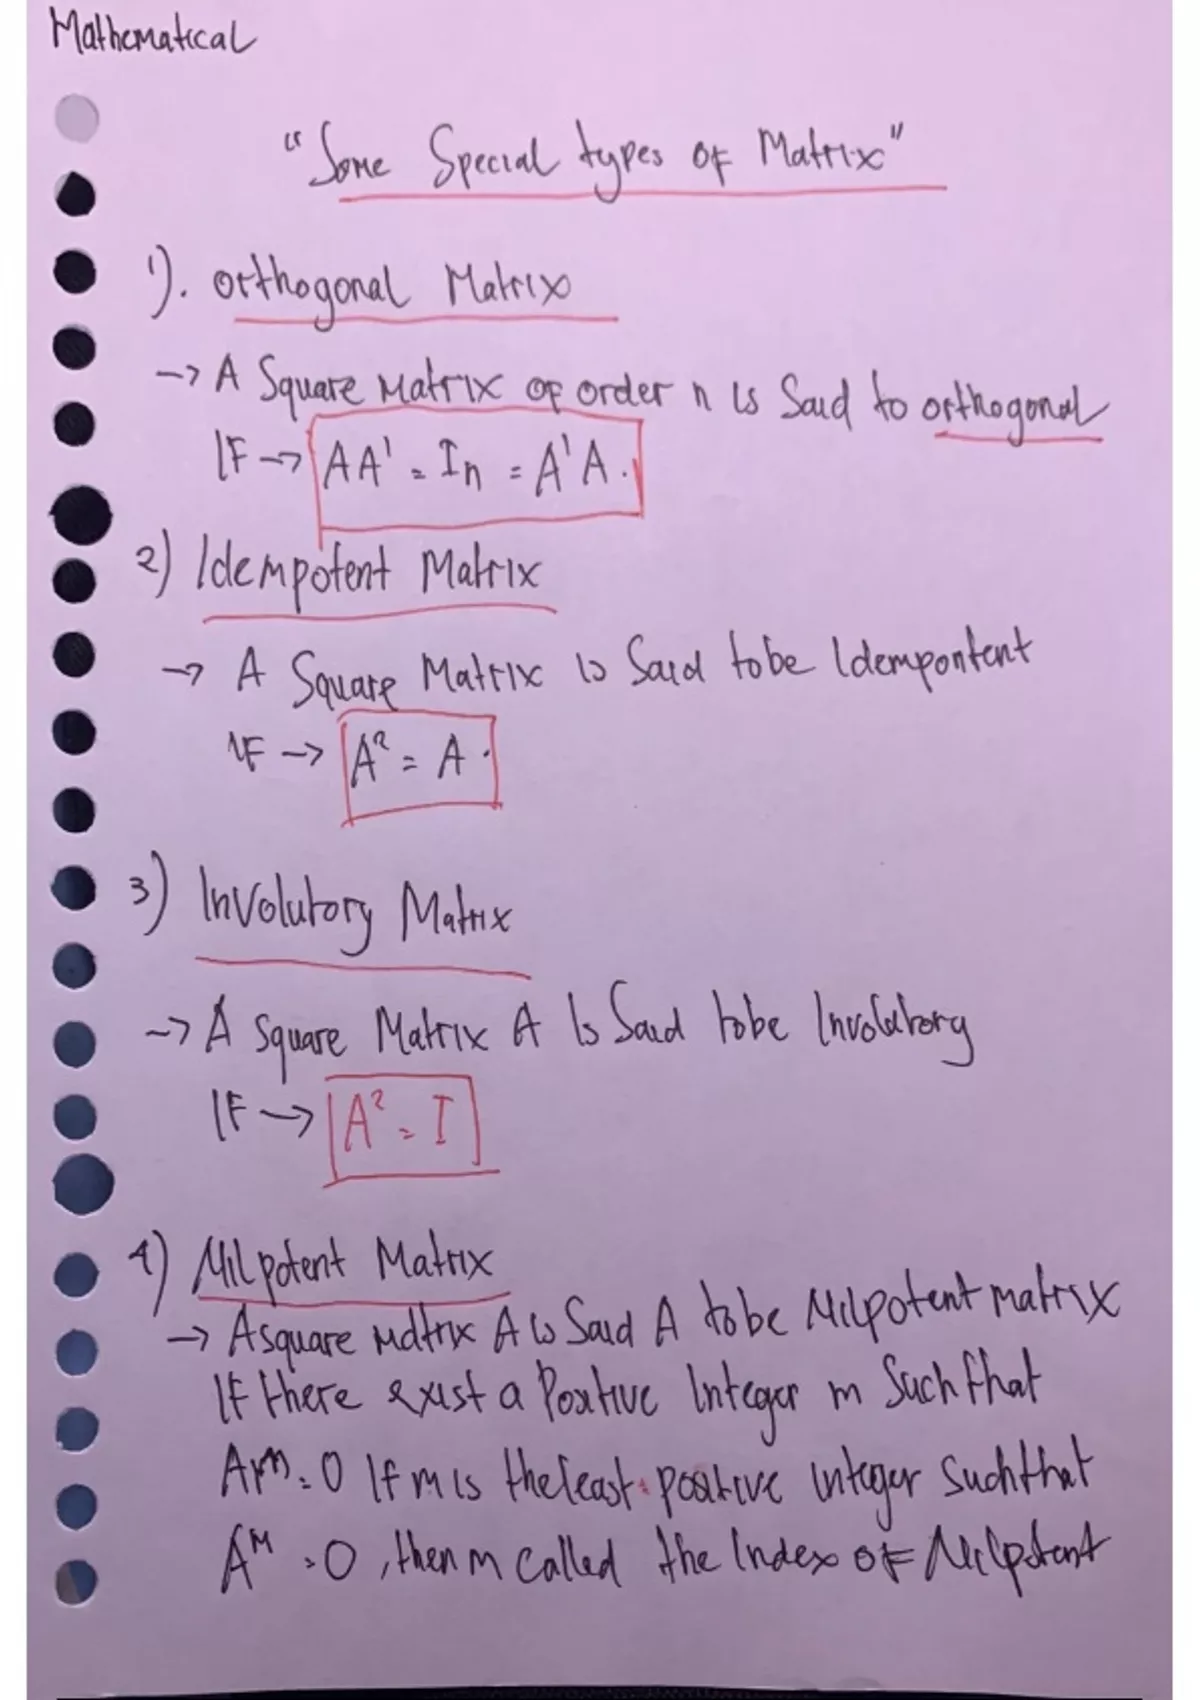 Mathematical
"Some Special types of Matrix"
1). Orthogonal Matrix
→ A Square Matrix of order n is Said to orthogonal
IF → AA' = In = A'A.
2) Idempotent Matrix
→ A Square Matrix is Said tobe Idempontent
IF → A² = A.
3) Involutory Matrix
→ A Square Matrix A Is Said tobe Involutory
IF → A² = I
4) Nilpotent Matrix
→ A square Matrix A is Said A tobe Nilpotent matrix
If there exist a Positive Integer m Such that
Am = 0 If m is the least positive integer such that
Aᴹ = 0, then m called the Index of Nilpotent